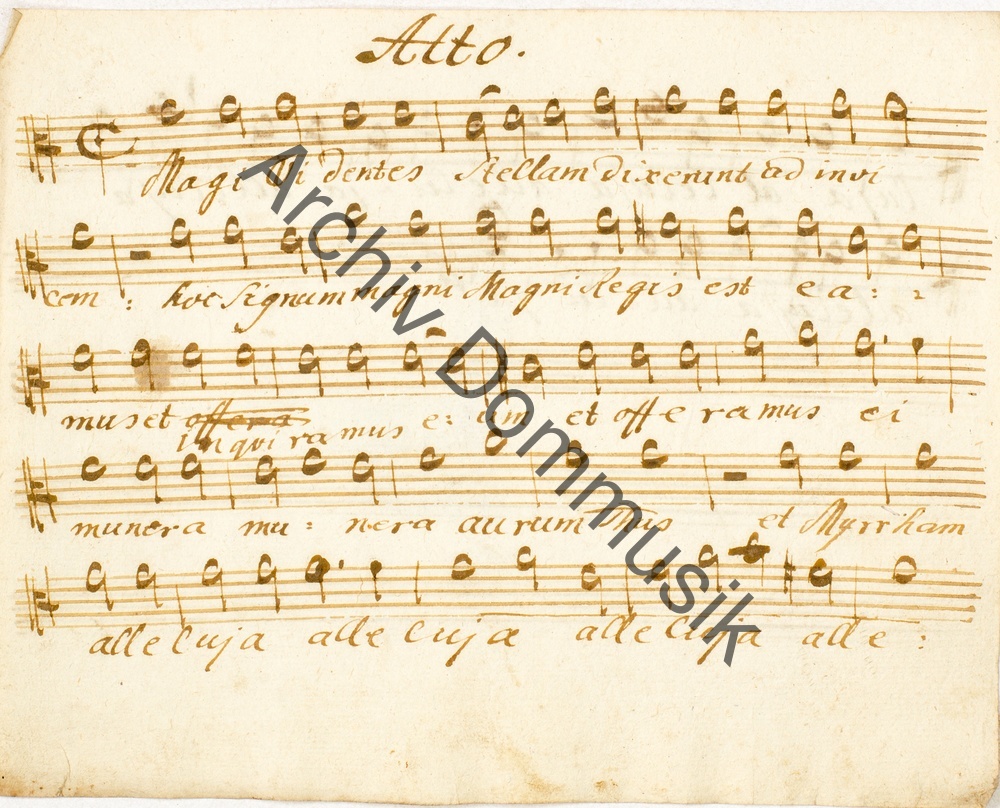 Alto.
Magi Videntes Stellam dixerunt ad invi
cem : hoc Signum magni Magni Regis est ea : :
mus et offera e: um et offeramus ei
inqviramus
munera mu : nera aurum Thus et Myrrham
alleluja alleluja alleluja alle :
Archiv Dommusik